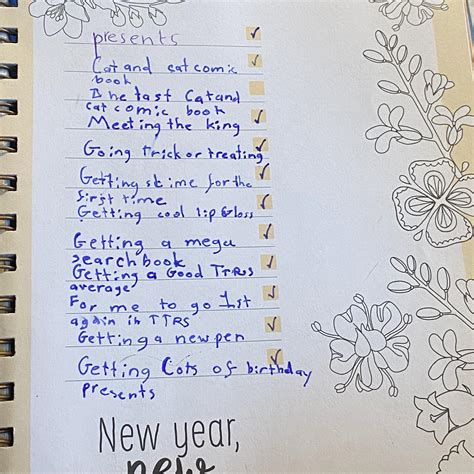 presents
Cat and cat comic
book
The last Cat and
cat comic book
Meeting the king
Going trick or treating
Getting slime for the
first time
Getting cool lip Gloss
Getting a mega
search book
Getting a Good TTRS
average
For me to go 1st
again in TTRS
Getting a new pen
Getting Lots of birthday
presents
New year,
new